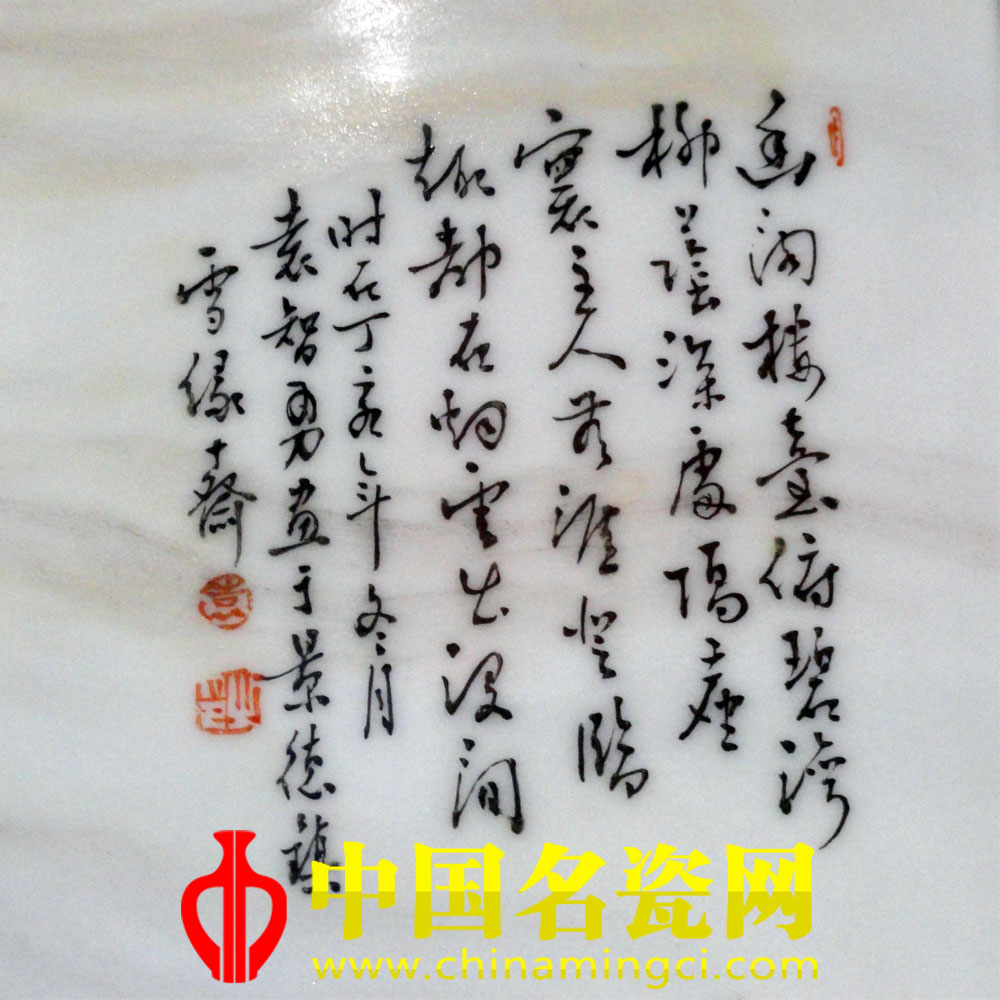 幽闲楼台俯碧湾
柳荫深处隔尘
寰主人无涯登临
趣都在烟云出没间
时在丁亥年冬月
袁智勇画于景德镇
雪缘斋
中国名瓷网
www.chinamingci.com